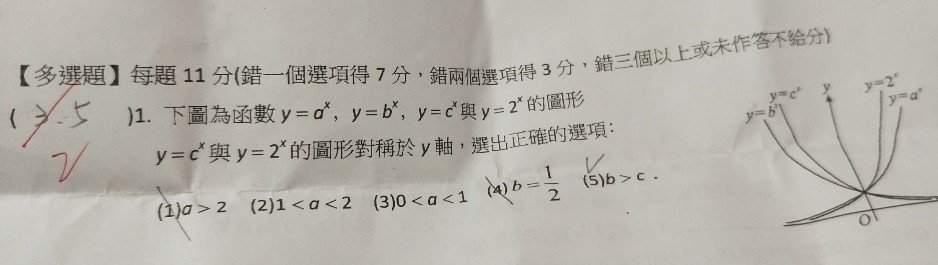 【多選題】每題 11 分(錯一個選項得 7 分，錯兩個選項得 3 分，錯三個以上或未作答不給分)
( 3.5 )1. 下圖為函數 y = aˣ, y = bˣ, y = cˣ 與 y = 2ˣ 的圖形
y = cˣ 與 y = 2ˣ 的圖形對稱於 y 軸，選出正確的選項：
(1)a > 2 (2)1 < a < 2 (3)0 < a < 1 (4) b = 1/2 (5)b > c .
y=cˣ y y=2ˣ
y=bˣ y=aˣ
O